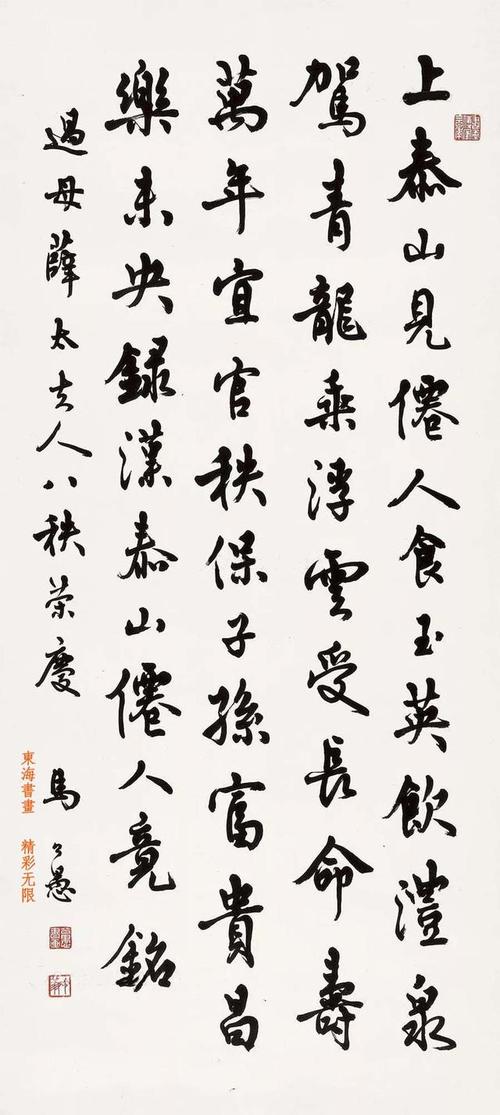 上泰山見僊人食玉英飲澧泉
駕青龍乘浮雲受長命壽
萬年宜官秩保子孫富貴昌
樂未央錄漢泰山僊人竟銘
過母薛太夫人八秩榮慶
馬公愚
東海書畫 精彩无限